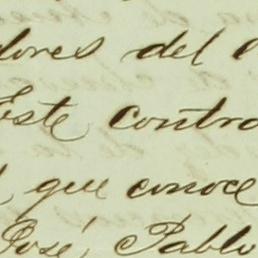 dores del
Este contra
que conoce
José, Pablo